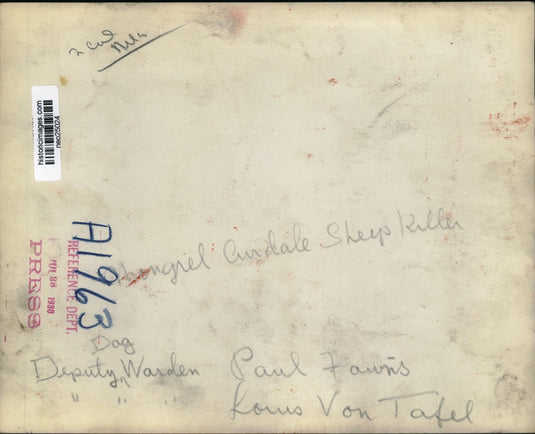 2 Col
historicimages.com
neo25024
A1963
REFERENCE DEPT.
28 1930
PRESS
Mongrel Airdale Sheep Killer
Dog
Deputy Warden Paul Fawns
" " " Louis Von Tafel